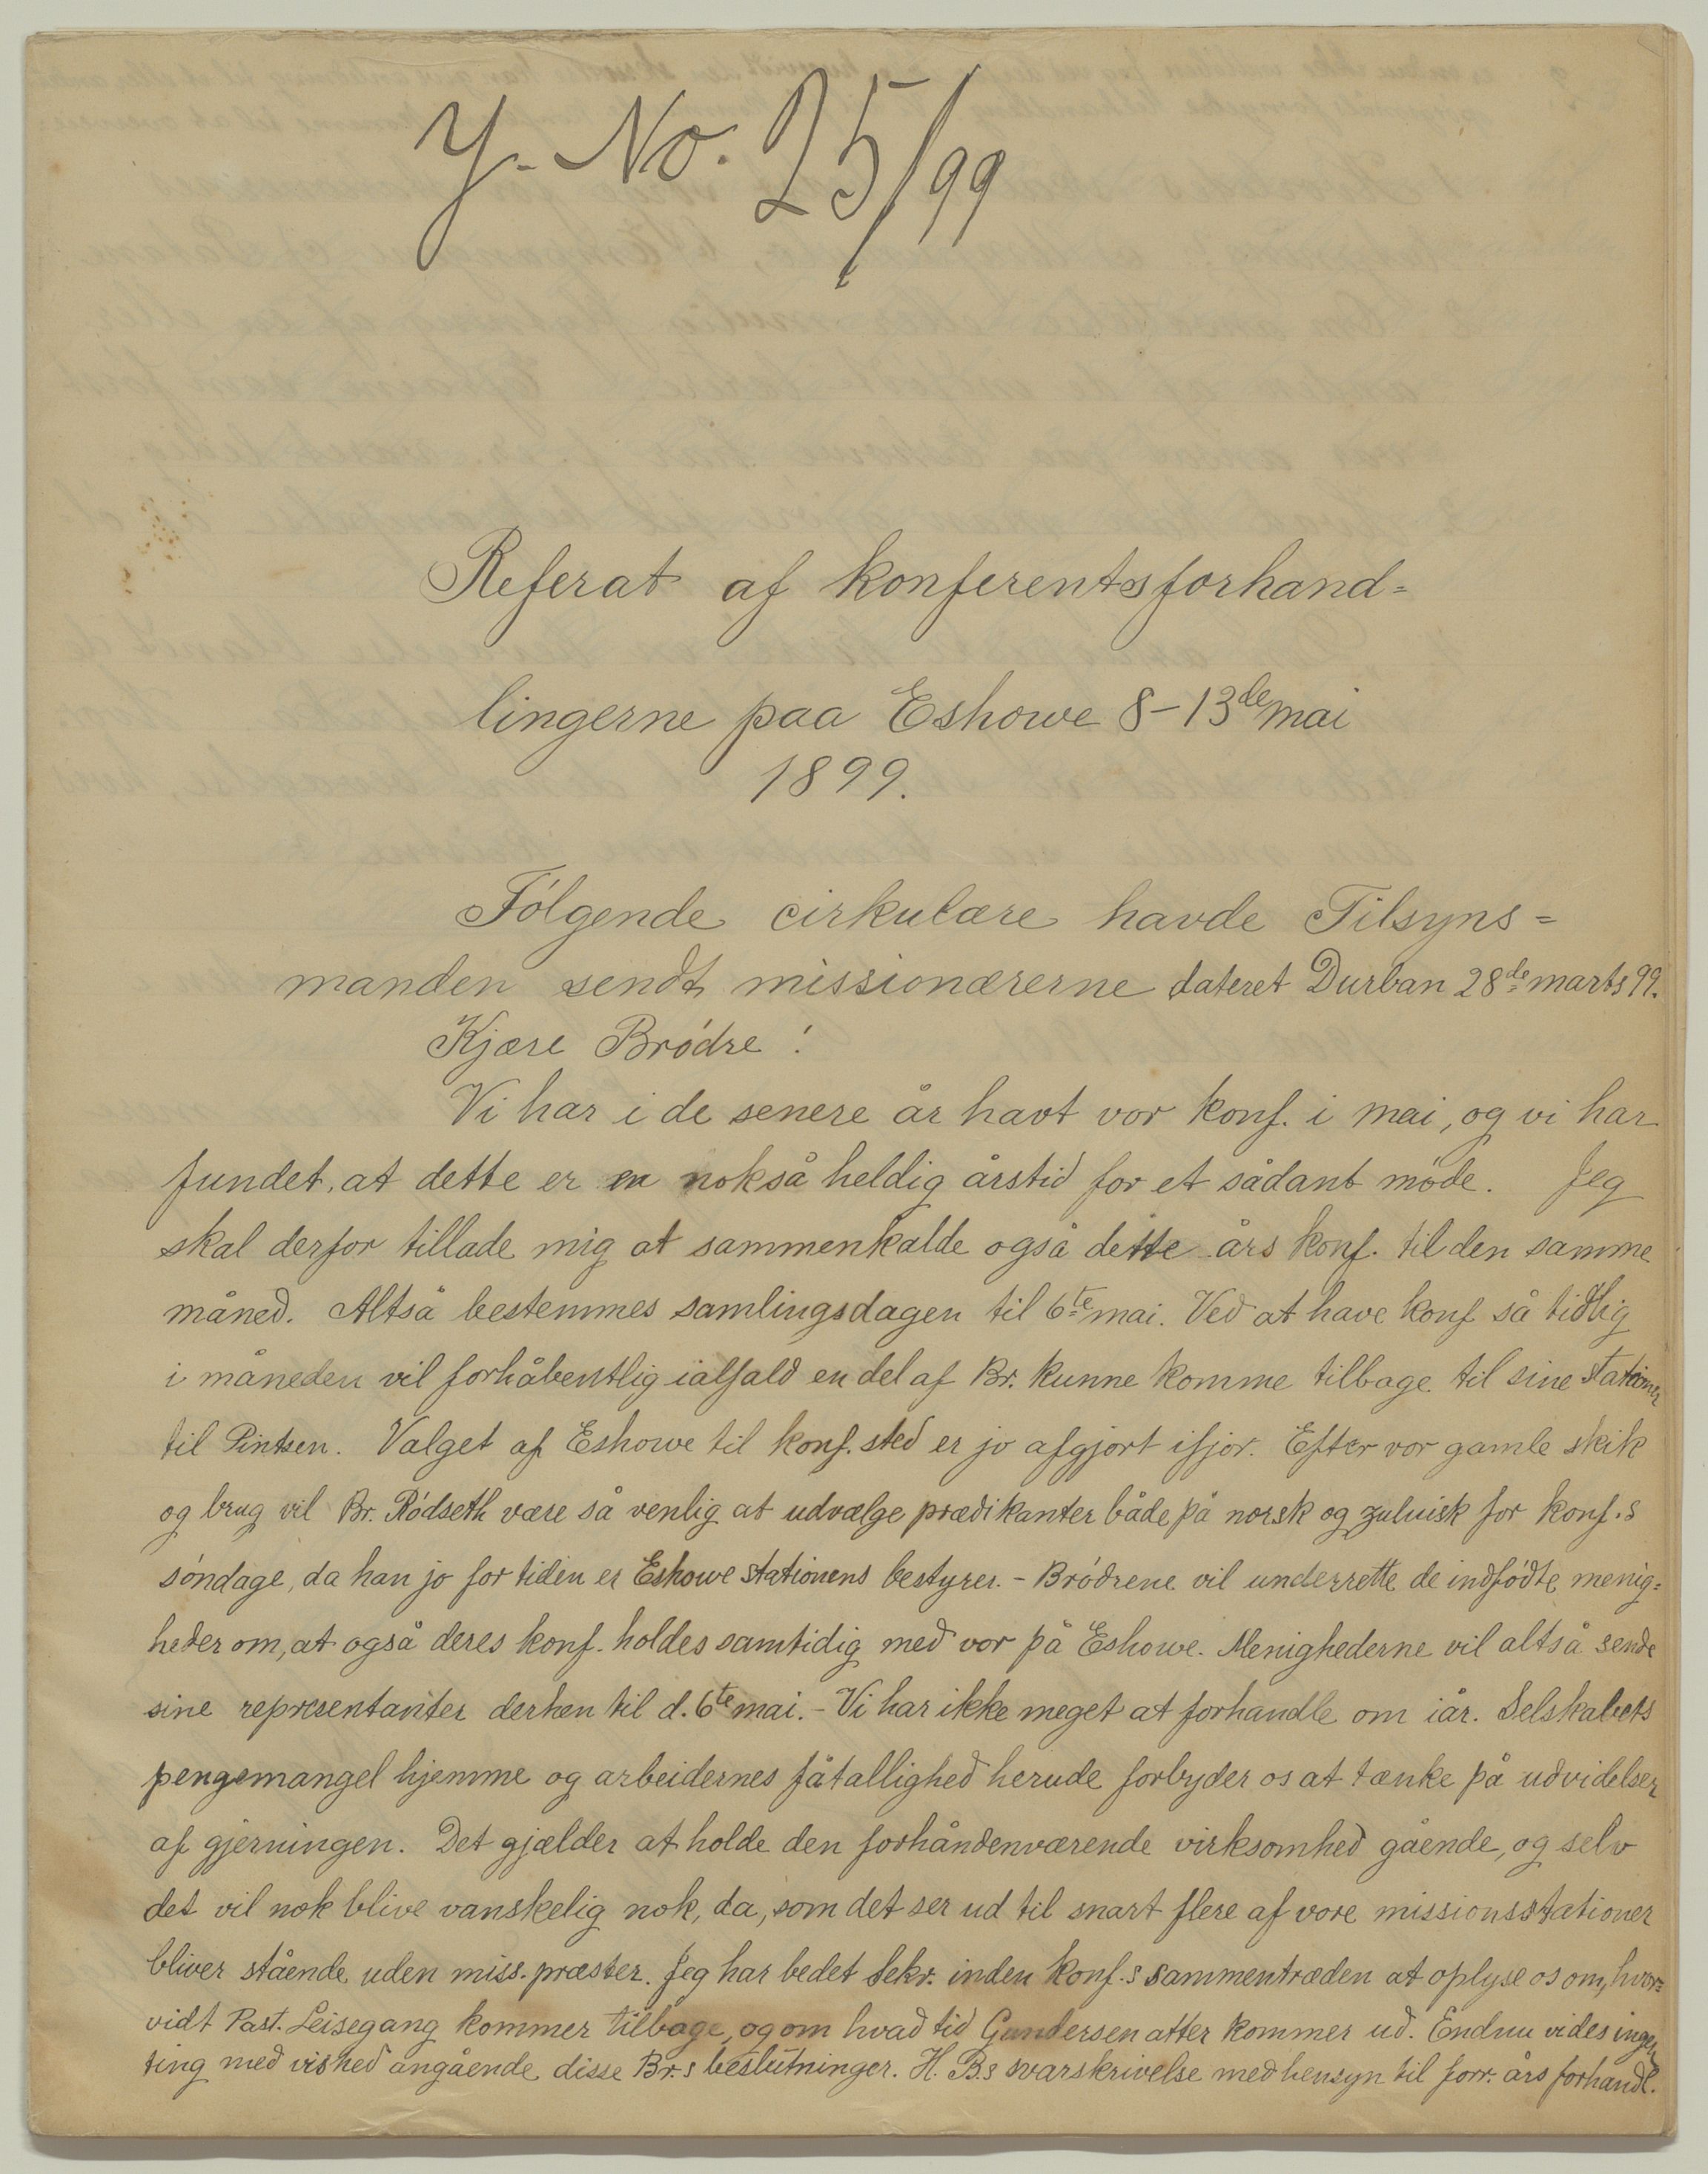 Y. No. 25/99
Referat af konferentsforhand=
lingerne paa Eshowe 8-13de mai
1899.
Følgende cirkulære havde Tilsyns=
manden sendt missionærerne dateret Durban 28de marts 99.
Kjære Brødre!
Vi har i de senere år havt vor konf. i mai, og vi har
fundet, at dette er en nokså heldig årstid for et sådant møde. Jeg
skal derfor tillade mig at sammenkalde også dette års konf. til den samme
måned. Altså bestemmes samlingsdagen til 6te mai. Ved at have konf så tidlig
i måneden vil forhåbentlig ialfald en del af Br. kunne komme tilbage til sine stationer
til Pintsen. Valget af Eshowe til konf. sted er jo afgjort ifjor. Efter vor gamle skik
og brug vil Br. Rødseth være så venlig at udvælge prædikanter både på norsk og zuluisk for konf.s
søndage, da han jo for tiden er Eshowe stationens bestyrer. - Brødrene vil underrette de indfødte menig=
heder om, at også deres konf. holdes samtidig med vor på Eshowe. Menighederne vil altså sende
sine representanter derhen til d. 6te mai. - Vi har ikke meget at forhandle om iår. Selskabets
pengemangel hjemme og arbeidernes fåtallighed herude forbyder os at tænke på udvidelser
af gjerningen. Det gjælder at holde den forhåndenværende virksomhed gående, og selv
det vil nok blive vanskelig nok, da, som det ser ud til snart flere af vore missionsstationer
bliver stående uden miss. præster. Jeg har bedet Sekr. inden konf.s sammentræden at oplyse os om, hvor=
vidt Past. Leisegang kommer tilbage, og om hvad tid Gundersen atter kommer ud. Endnu vides ingen
ting med vished angående disse Br.s beslutninger. H. B.s svarskrivelse med hensyn til forr. års forhandl.